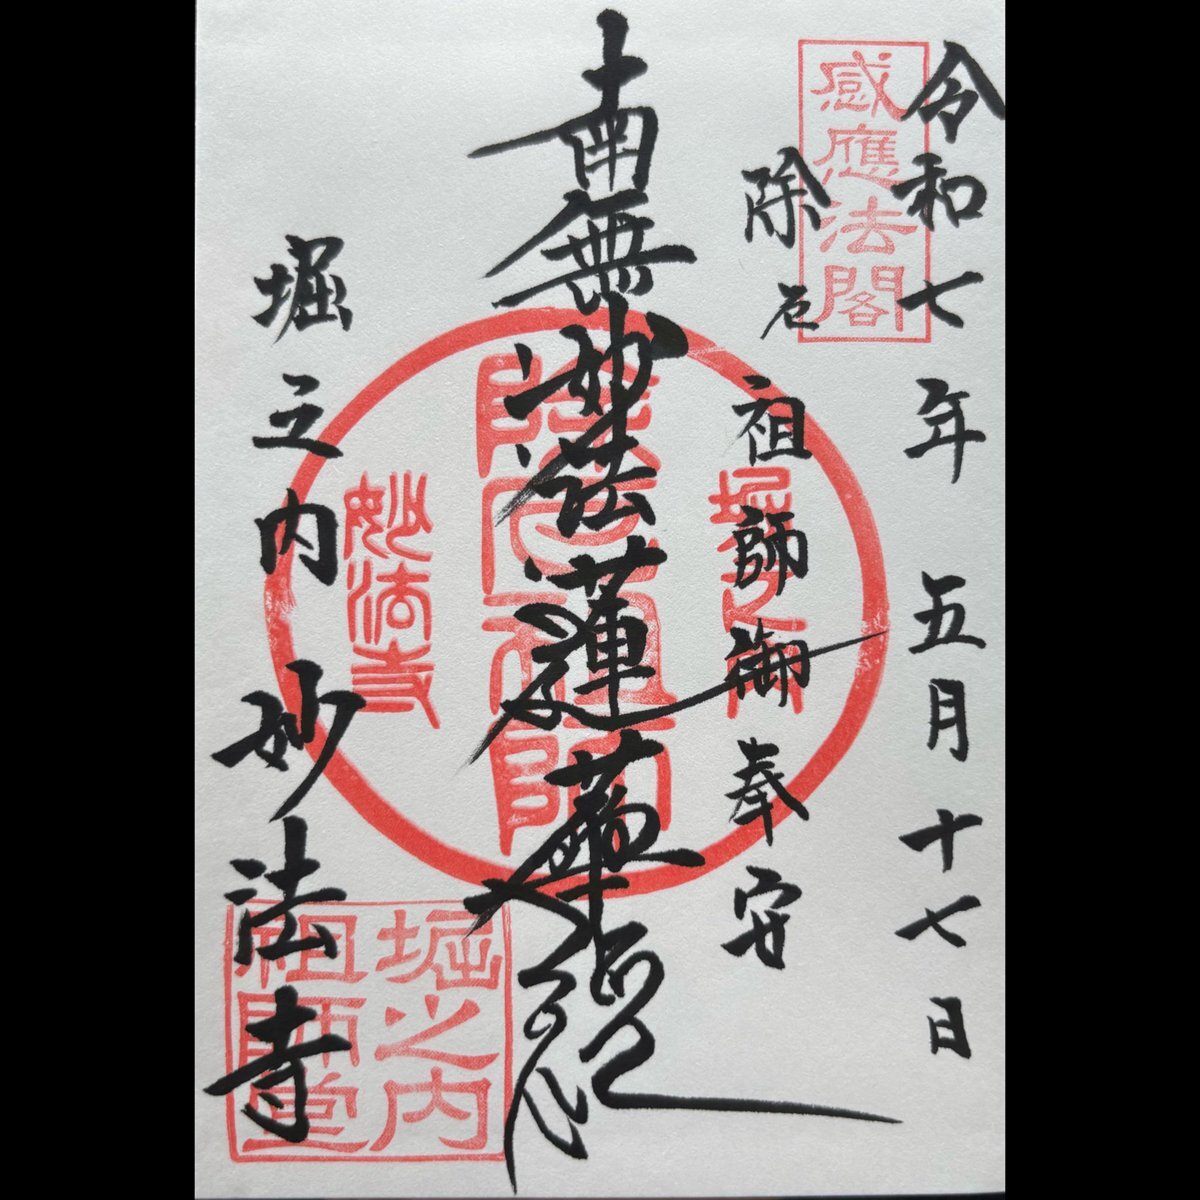 令和七年五月十七日
感應法閣
除厄祖師御奉安
南無妙法蓮華経
堀之内
除厄祖師
妙法寺
堀之内妙法寺
堀之内
祖師堂